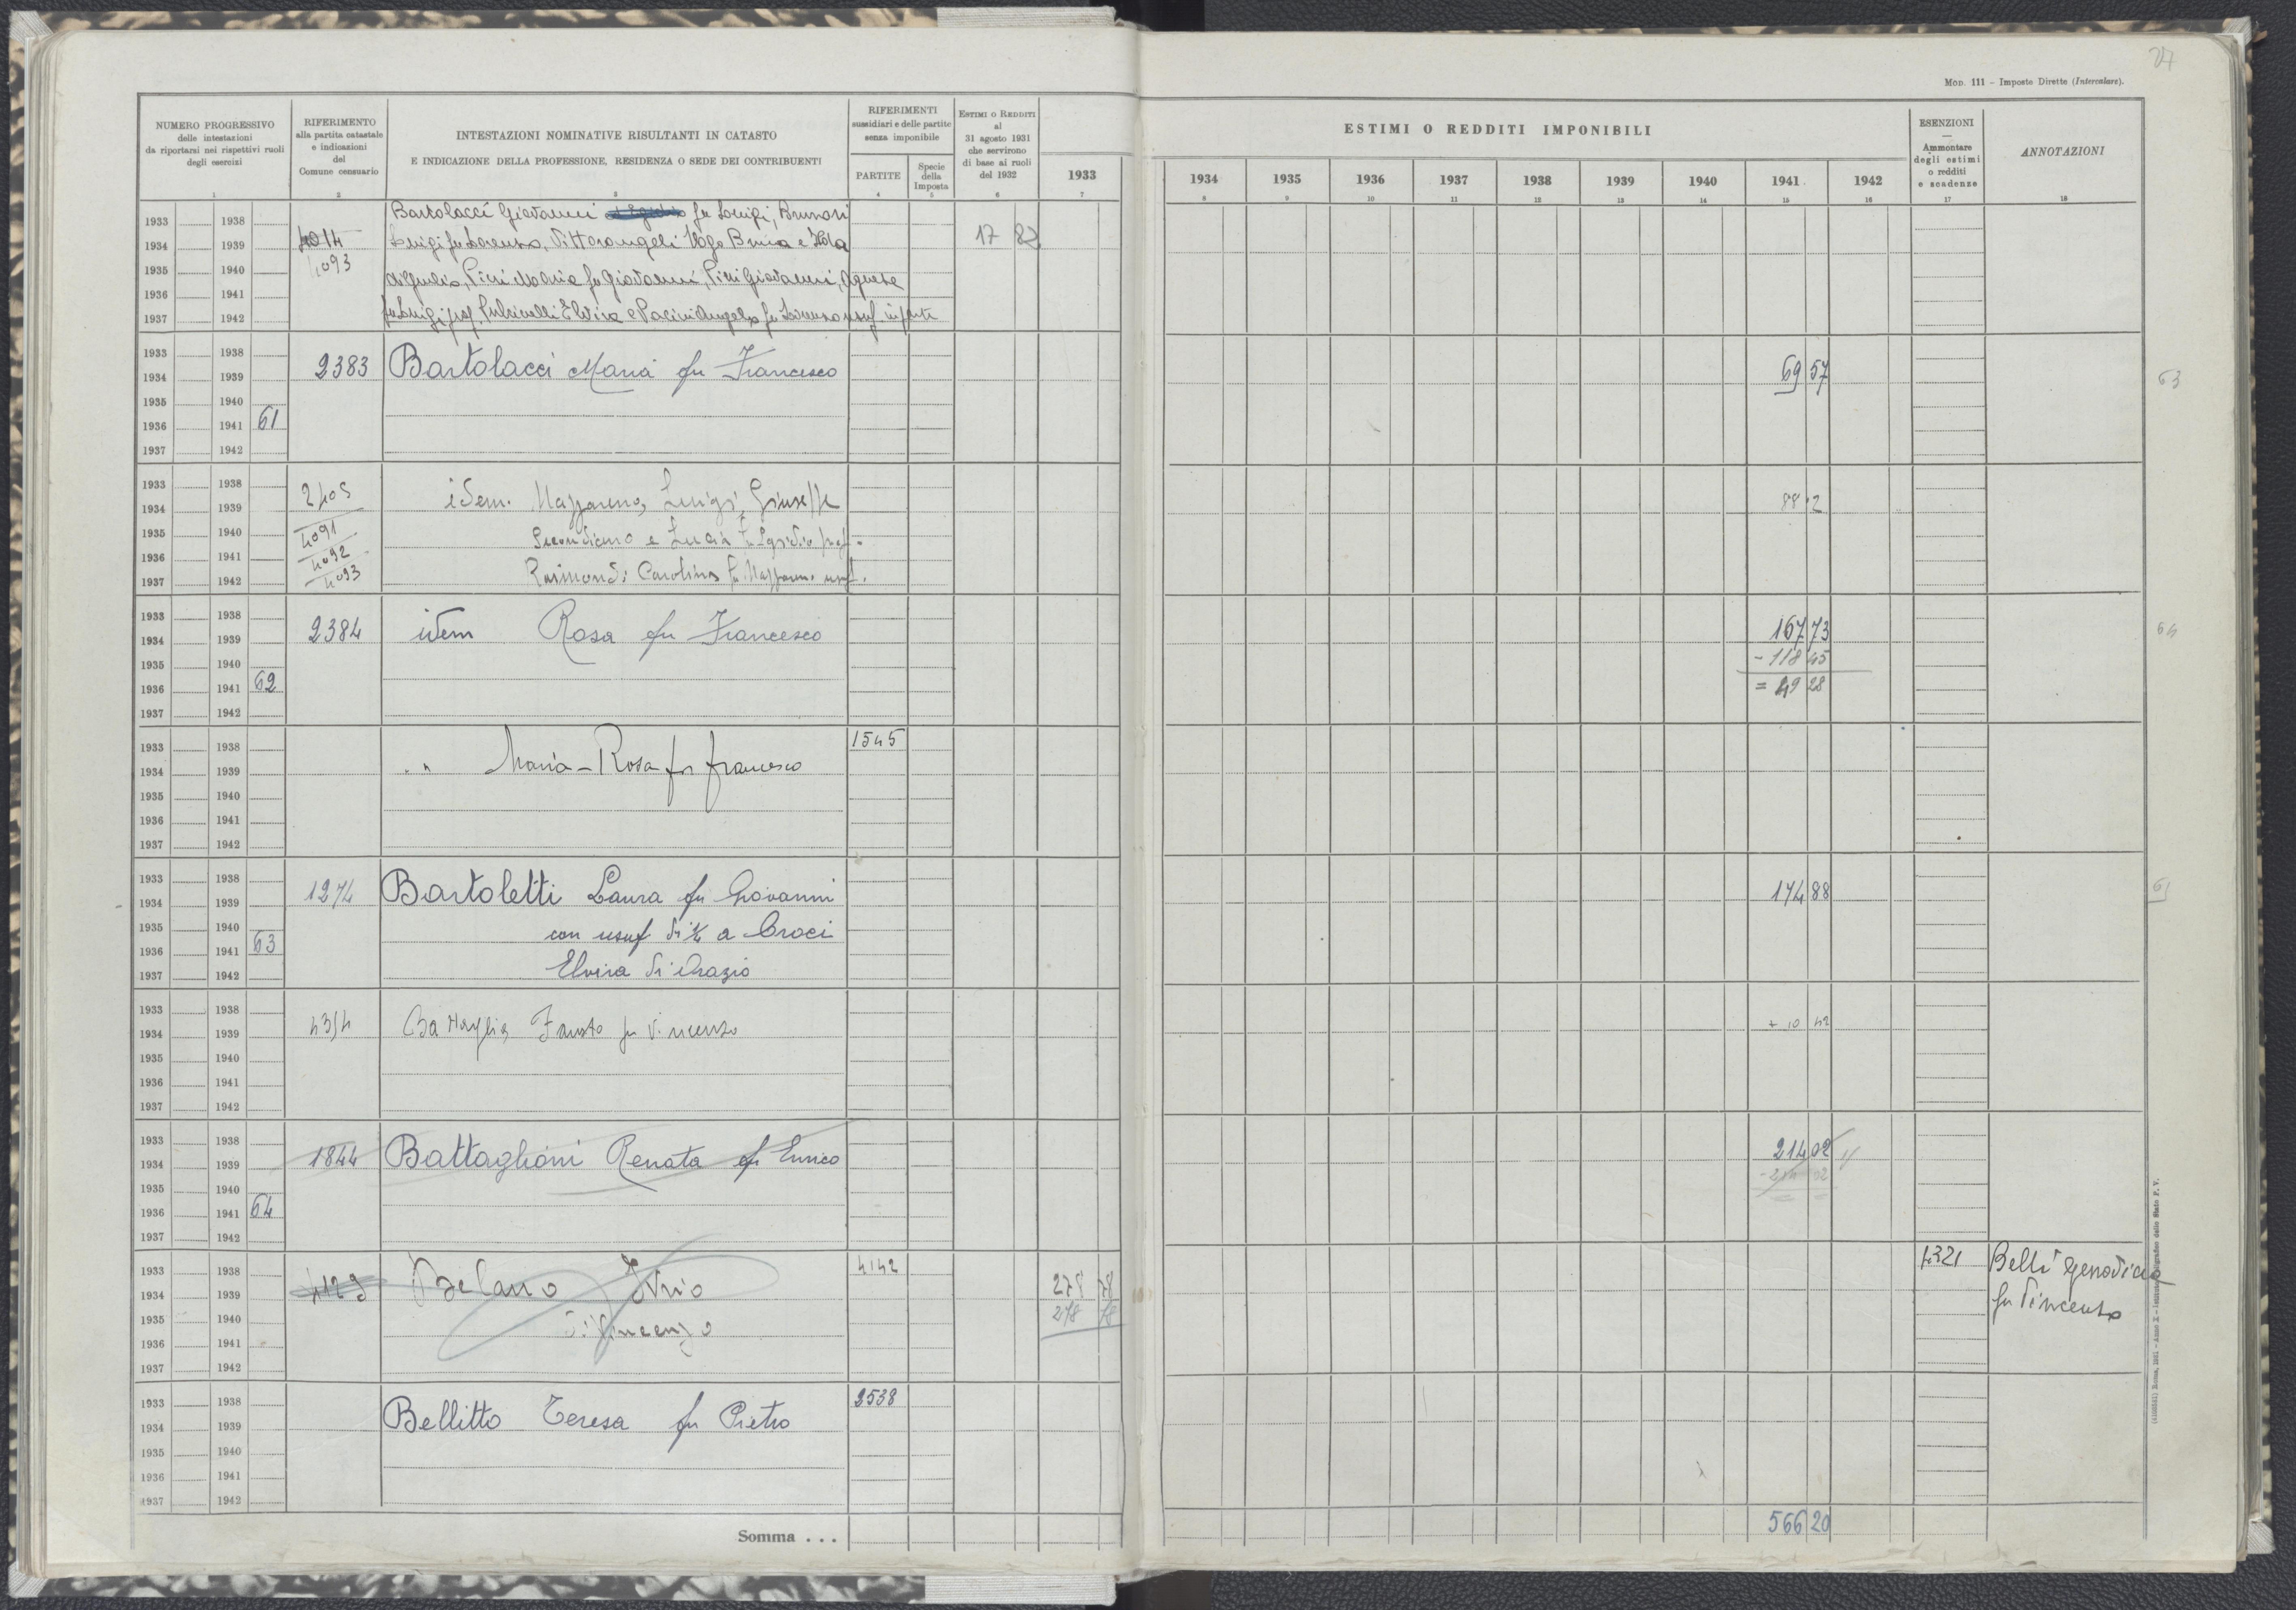 27
Mod. 111 – Imposte Dirette (Intercalare).
NUMERO PROGRESSIVO
delle intestazioni
da riportarsi nei rispettivi ruoli
degli esercizi
1
RIFERIMENTO
alla partita catastale
e indicazioni
del
Comune censuario
2
INTESTAZIONI NOMINATIVE RISULTANTI IN CATASTO
E INDICAZIONE DELLA PROFESSIONE, RESIDENZA O SEDE DEI CONTRIBUENTI
3
RIFERIMENTI
sussidiari e delle partite
senza imponibile
PARTITE
4
Specie
della
Imposta
5
ESTIMI O REDDITI
al
31 agosto 1931
che servirono
di base ai ruoli
del 1932
6
ESTIMI O REDDITI IMPONIBILI
1933 1934 1935 1936 1937 1938 1939 1940 1941 1942
7 8 9 10 11 12 13 14 15 16
ESENZIONI
—
Ammontare
degli estimi
o redditi
e scadenze
17
ANNOTAZIONI
18
1933 1938 Bartolacci Giovanni fu Luigi, Brunori
1934 1939 4014 Luigi fu Lorenzo, Vittorangeli Ugo Bruna e Ilda 17 82
1935 1940 4093 di Giulio, Pini Maria fu Giovanni, Pini Giovanni, Agnese
1936 1941
1937 1942 fu Luigi prop. Pulcinelli Elvira e Pacini Angelo fu Lorenzo usuf. in parte
1933 1938
1934 1939 2383 Bartolacci Maria fu Francesco 69 57 63
1935 1940
1936 1941 61
1937 1942
1933 1938
1934 1939 2405 idem. Nazzareno, Luigi, Giuseppe 88 12
1935 1940 4091 Secondiano e Lucia fu Egidio prop.
1936 1941 4092
1937 1942 4093 Raimondi Carolina fu Nazzareno usuf.
1933 1938
1934 1939 2384 idem Rosa fu Francesco 167 73 64
1935 1940 - 118 45
1936 1941 62 = 49 28
1937 1942
1933 1938 1545
1934 1939 " Maria-Rosa fu Francesco
1935 1940
1936 1941
1937 1942
1933 1938
1934 1939 1274 Bartoletti Laura fu Giovanni 174 88
1935 1940 con usuf. di ½ a Croci
1936 1941 63
1937 1942 Elvira di Orazio
1933 1938
1934 1939 4354 Battaglia Fausto fu Vincenzo + 10 42
1935 1940
1936 1941
1937 1942
1933 1938
1934 1939 1844 Battaglioni Renata fu Enrico 214 02
1935 1940 - 214 02
1936 1941 64 = =
1937 1942
1933 1938 4142 4321 Belli Genoveffa
1934 1939 4129 Belano Ivrio 278 78 fu Vincenzo
1935 1940 di Vincenzo 278 78
1936 1941
1937 1942
1933 1938 2538
1934 1939 Bellitto Teresa fu Pietro
1935 1940
1936 1941
1937 1942
Somma . . . 566 20